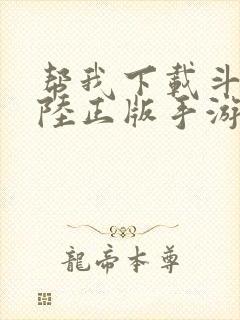 帮我下載斗
陸正版手游
龍帝本尊